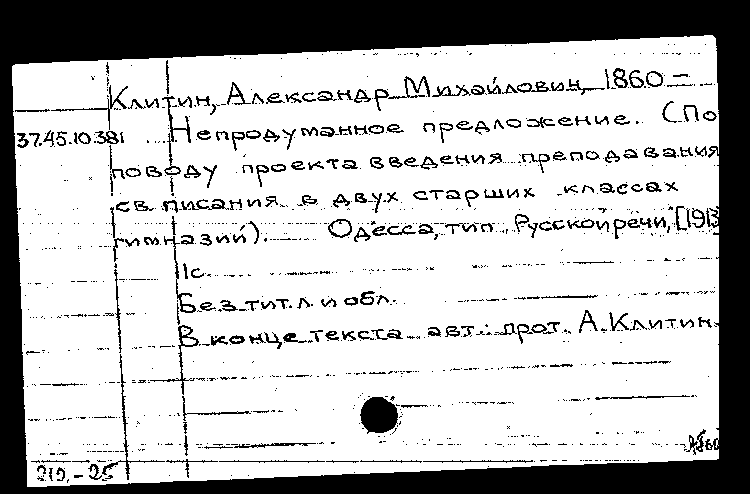 Клитин, Александр Михайлович, 1860 –
37.45.10.381 Непродуманное предложение. (По
поводу проекта введения преподавания
св. писания в двух старших классах
гимназии). Одесса, тип. Русской речи, [1913
11с.
Без тит. л. и обл.
В конце текста авт.: прот. А. Клитин.
212.-25